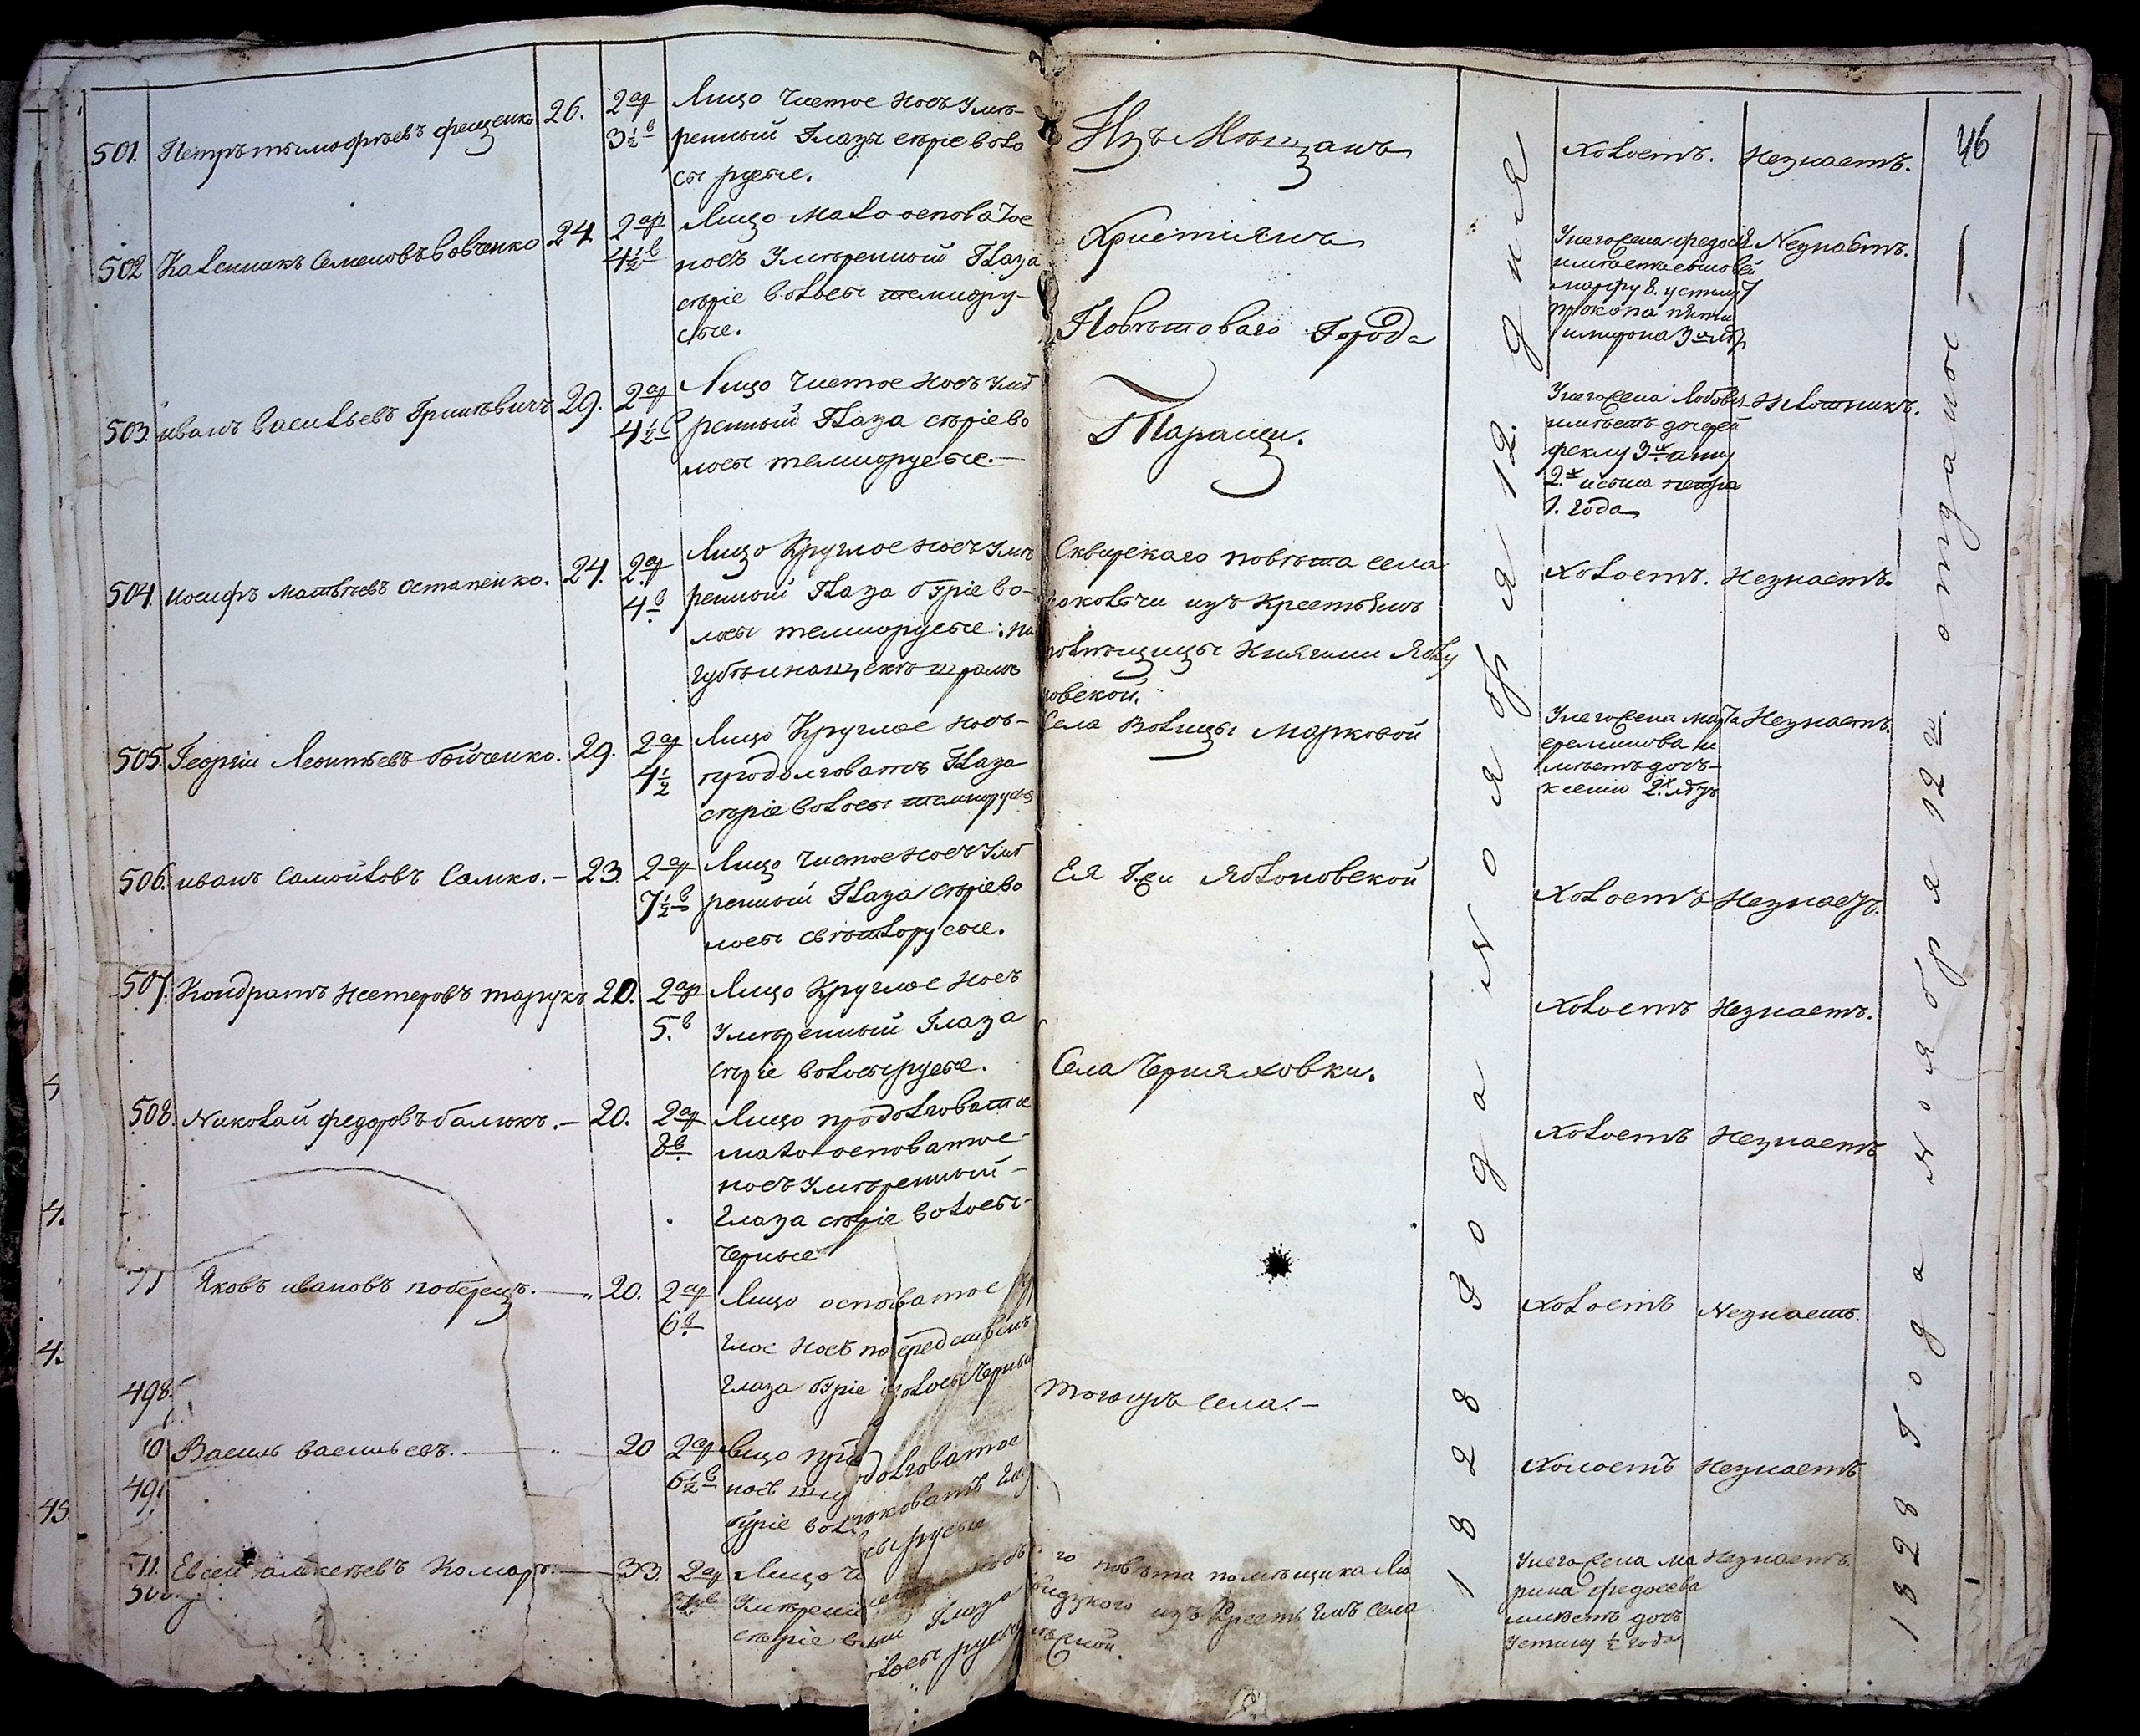 46
501. Петръ тимофѣевъ фещенко 26. 2 ар 3 ½ в Лицо чистое носъ умѣ-
ренный Глаза сѣріе воло
сы русые.
Изъ Мѣщанъ
холостъ. Незнаетъ.
502 Каленникъ Семеновъ вовченко 24. 2 ар 4 ½ в Лицо мало осповатое
носъ умѣренный Глаза
сѣріе волосы темнору-
сые.
Христіянъ
Повѣтоваго Города
Унего жена федосія Незнаетъ.
имѣетъ
марфу 8. устину 7
прокопа пяти
имирона 3 хъ лѣтъ
503. иванъ васильевъ Гринѣвичъ 29. 2 ар 4 ½ в Лицо чистое носъ умѣ
ренный Глаза сѣріе во
лосы темнорусые.—
Таращи.
Унего жена Любовъ Плотникъ.
имѣетъ дочерей
феклу 3 х анну
2. х исына петра
1. года
504. иосифъ матвѣевъ остапенко. 24. 2 ар 4 в Лицо Круглое носъ умѣ
ренный Глаза буріе во-
лосы темнорусые: на
губѣ инащекѣ шрамъ
Сквирскаго повѣта села
изъ Крестьянъ
Княгини Ябло
новской.
Холостъ. Незнаетъ.
505. Георгіи Леонтьевъ бойченко. 29. 2 ар 4 ½ Лицо Круглое носъ-
продолговатъ Глаза
сѣріе волосы темнорусыя
Села волицы Марковой
Унего жена марфа Незнаетъ.
еремикова и
мѣетъ дочь-
ксению 2 х лѣтъ
506. иванъ самойловъ Самко.- 23 2 ар 7 ½ в Лицо чистое носъ умѣ
ренный Глаза сѣріе во
лосы свѣтлорусые.
Ея Яблоновской
Холостъ Незнаетъ.
507. Кондратъ Нестеровъ таруκъ 20. 2 ар 5. в Лицо Круглое носъ
Умѣренный Глаза
сѣріе волосы русые.
Села Черняховки.
холостъ Незнаетъ.
508. Николай федоровъ балюкъ.- 20. 2 ар 8 в Лицо продолговатое
мало осповатое-
носъ умѣренный-
Глаза сѣріе волосы-
черные
холостъ Незнаетъ
Яковъ ивановъ поберецъ.— 20. 2 ар 6 в Лицо осповатое кру
глое носъ посредственъ
Глаза буріе волосы черные
Тогожъ села.-
холостъ Незнаетъ.
498.
10 Василь васильевъ.— 20 2 ар 6 ½ в Лицо продолговатое
буріе волосы русые
холостъ Незнаетъ
49
511. Евсей алексѣевъ Комаръ.— 33. 2 ар Лицо
Умѣренный Глаза
сѣріе волосы русые
500
повѣта помѣщика
изъ Крестьянъ села
Унего жена ма Незнаетъ.
рина федосеева
имѣетъ дочь
устину ½ года
1828 Года Ноября 12. дня
1828 Года Ноября 12 го. отданые —